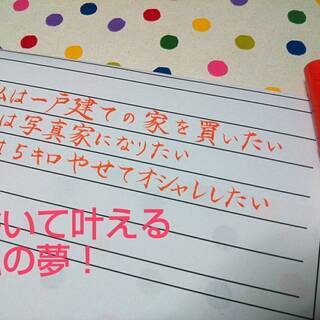 は一戸建ての家を買いたい
は写真家になりたい
5キロやせてオシャレしたい
いて叶える
の夢！